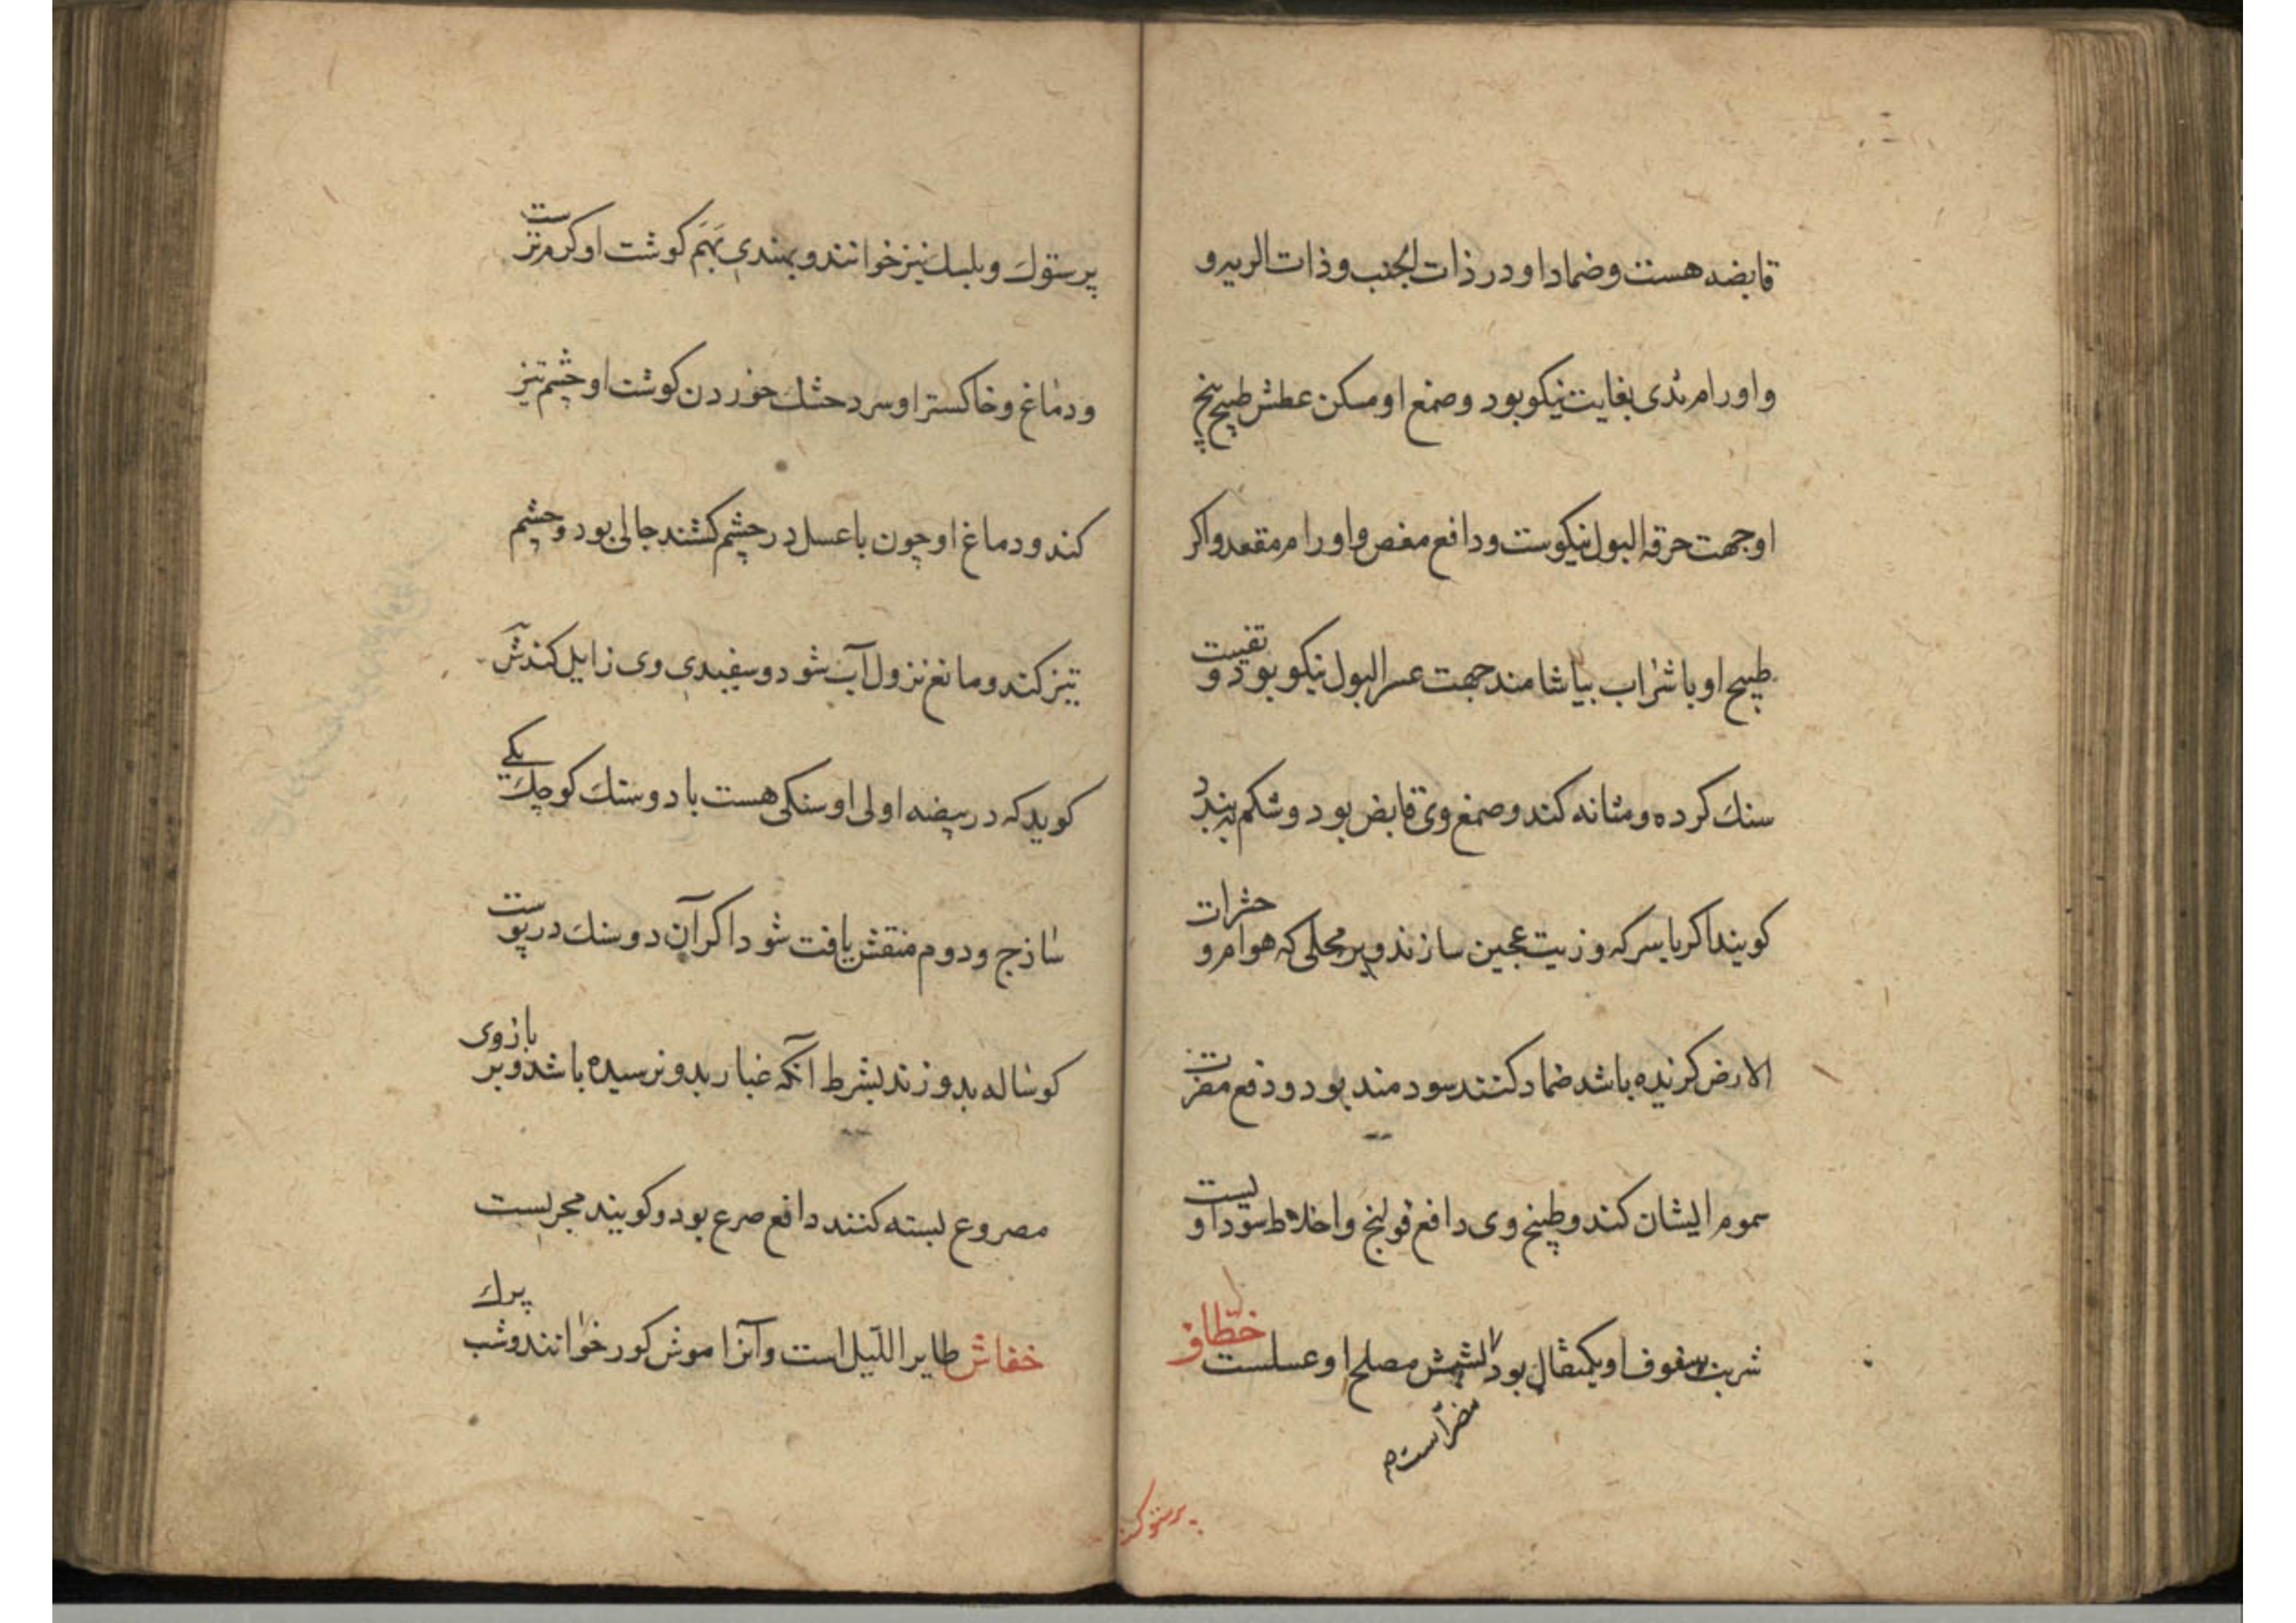 قابضه هست و ضماد او در ذات الجنب و ذات الریه و
و اورام ثدی بغایت نیکو بود و صمغ او مسکن عطش طبیخ بیخ
او جهت حرقة البول نیکوست و دافع مغص و اورام مقعد و اکر
طبیخ او با شراب بیاشامند جهت عسر البول نیکو بود و تفتیت
سنك کرده و مثانه کند و صمغ وی قابض بود و شکم ببندد
کویند اکر با سرکه و زیت عجین سازند و بر محلی که هوام و حشرات
الارض کزیده باشد ضماد کنند سودمند بود و دفع مضرت
سموم ایشان کند و طبیخ وی دافع قولنج و اخلاط سوداویست
شربت سفوف او یکمثقال بود مصلح او عسلست خطّاف
مضر است م
پرستوك
پرستوك و بلبل نیز خوانند و بهندی بَهَم کوشت او کرمترست
و دماغ و خاکستر او سرد خشك خوردن کوشت او چشم تیز
کند و دماغ او چون با عسل در چشم کشند جالی بود و چشم
تیز کند و مانع نزول آب شود و سفیدی وی زایل کند
کوید که در بیضه اولی او سنکی هست با دو سنك کوچك یکی
ساذج و دوم منقش یافت شود اکر آن دو سنك در پوست
کوساله بدوزند بشرط آنکه غبار بدو نرسیده باشد و بر بازوی
مصروع بسته کنند دافع صرع بود و کویند مجربست
خفاش طایر اللّیل است و آنرا موش کور خوانند و شب پرك